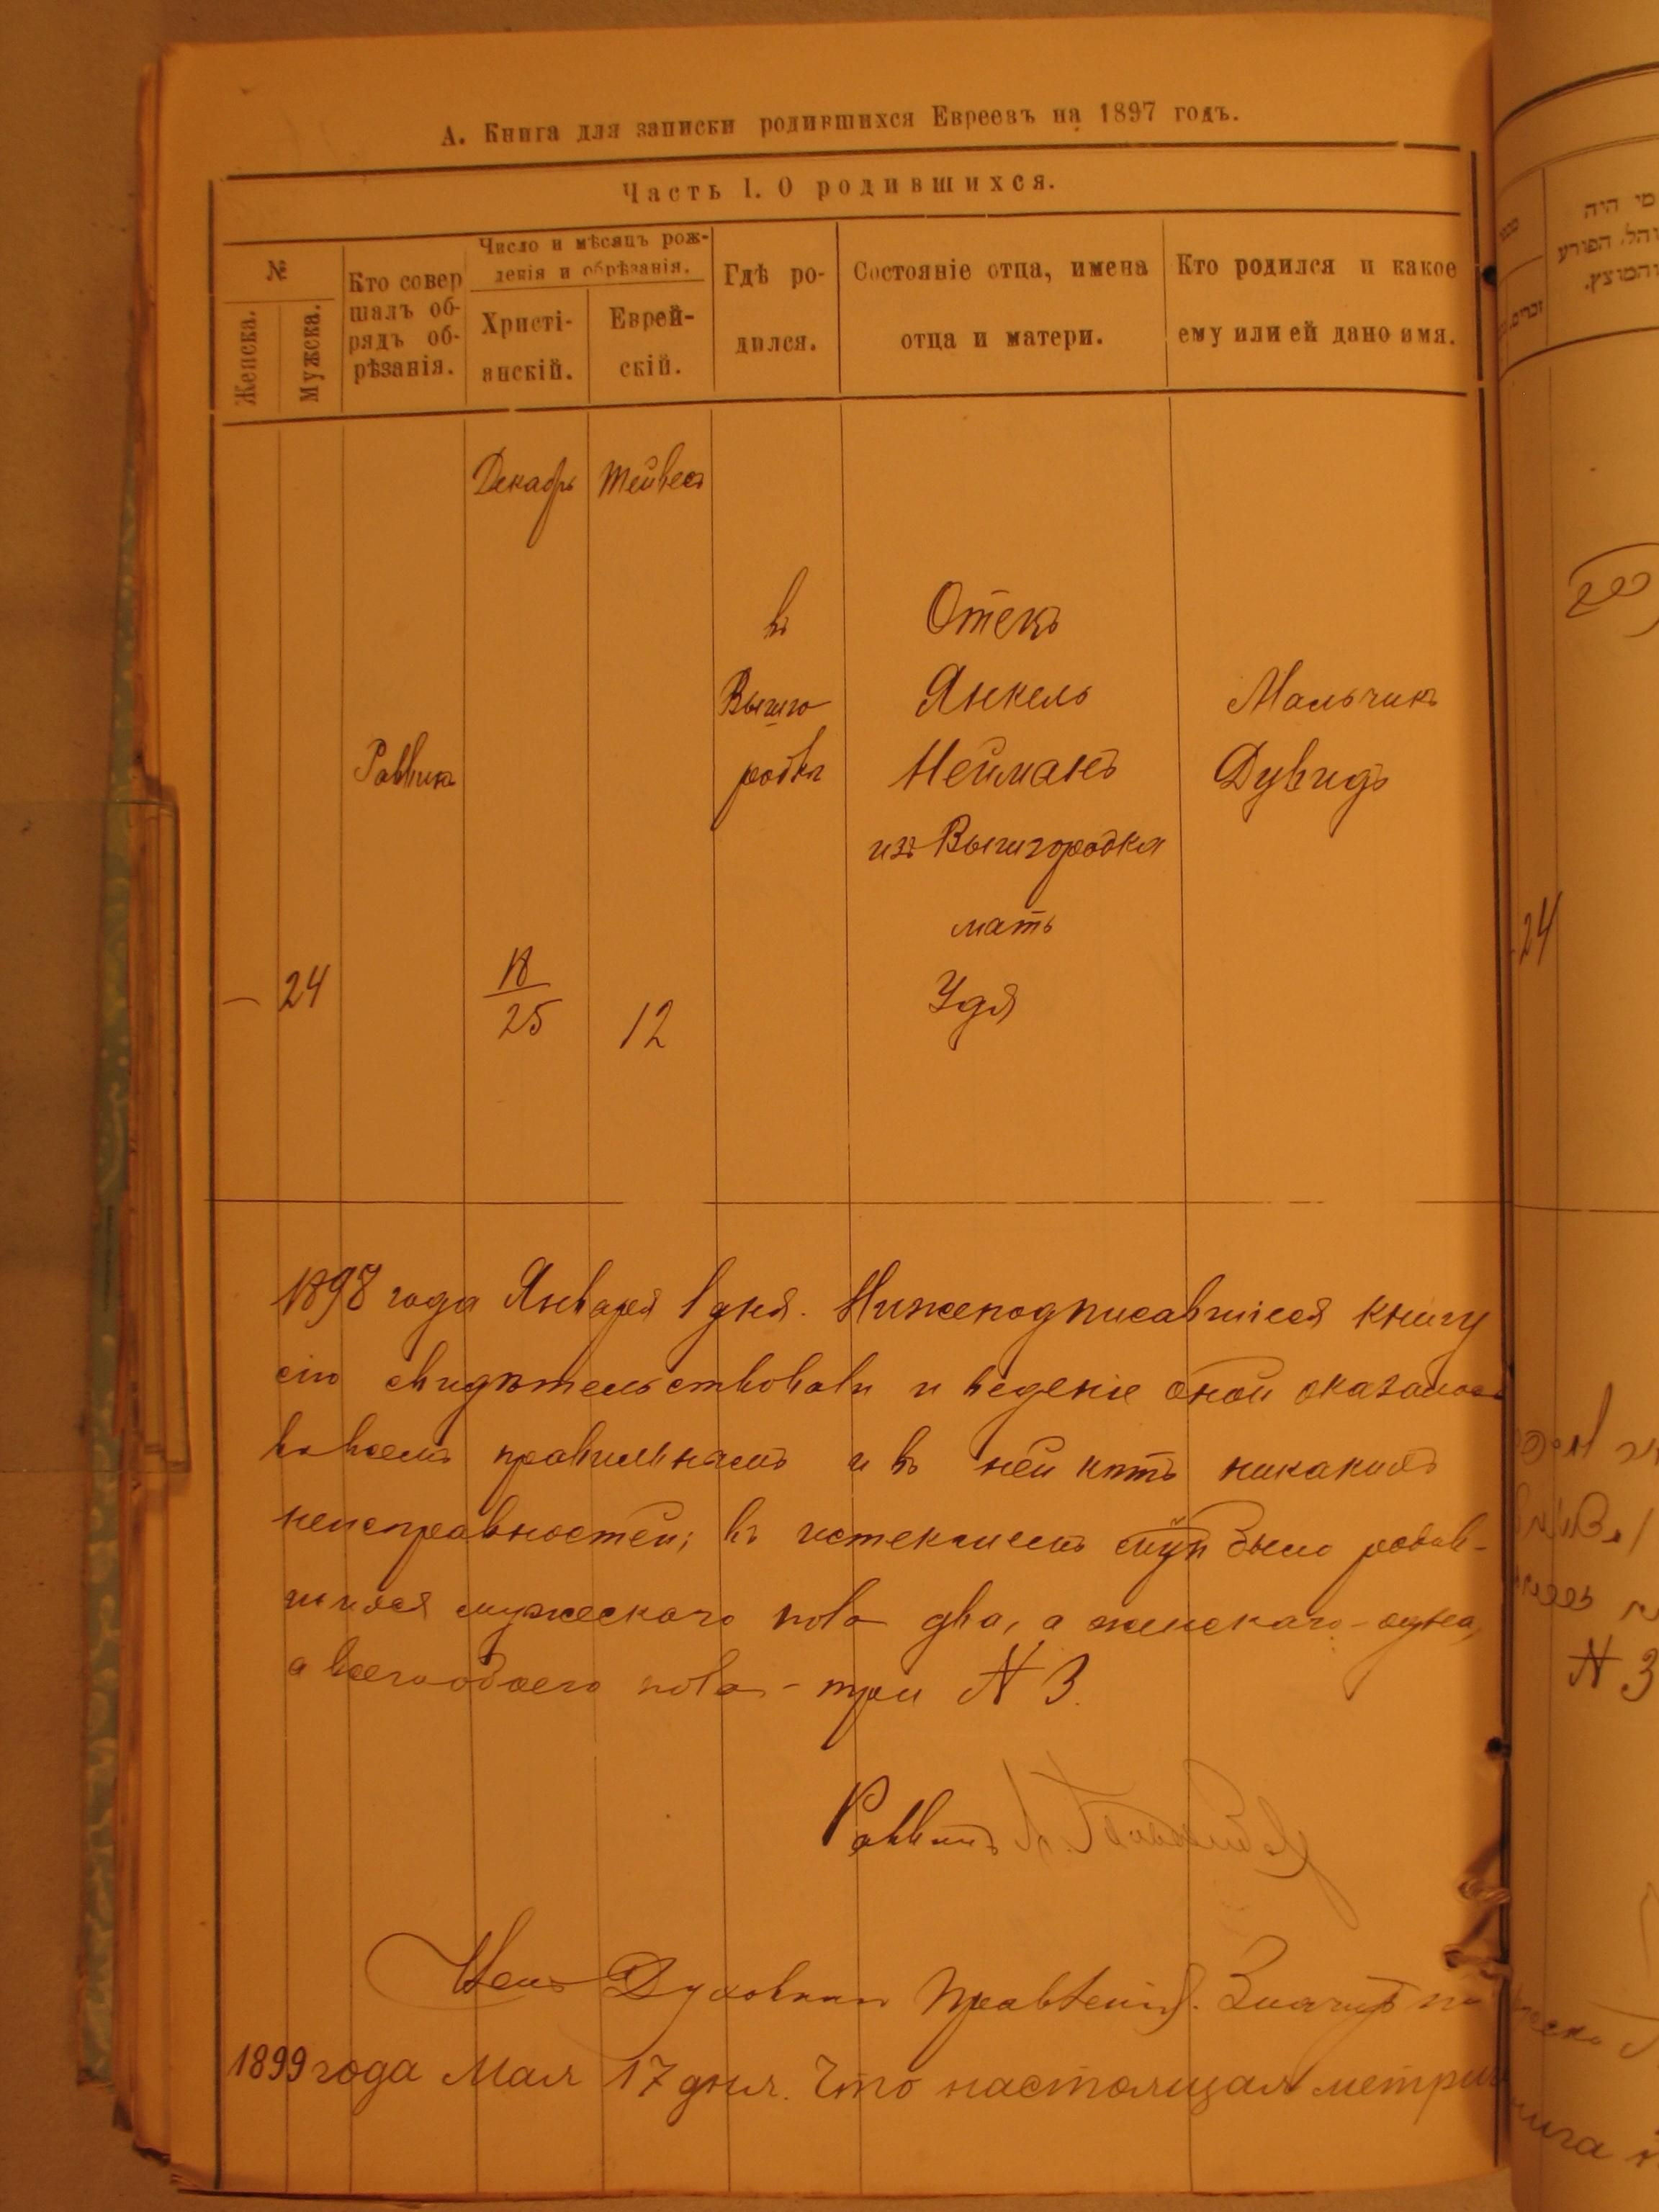 А. Книга для записки родившихся Евреевъ на 1897 годъ.
Часть I. О родившихся.
№
Женска.
Мужска.
Кто совер
шалъ об-
рядъ об-
рѣзанія.
Число и мѣсяцъ рож-
денія и обрѣзанія.
Христі-
анскій.
Еврей-
скій.
Гдѣ ро-
дился.
Состояніе отца, имена
отца и матери.
Кто родился и какое
ему или ей дано имя.
Декабрь
Тейвесъ
въ
Вышго
родкѣ
Отецъ
Янкель
Нейманъ
изъ Вышгородка
мать
Удя
Мальчикъ
Дувидъ
Раввинъ
— 24
18
25
12
1898 года Января 1 дня. Нижеподписавшіеся книгу
сію свидѣтельствовали и веденіе оной оказалось
во всемъ правильнымъ и въ ней нѣтъ никакихъ
неисправностей; въ истекшемъ было родив-
шихся мужескаго пола два, а женскаго - одна,
а всего обоего пола - три N 3.
Раввинъ
Членъ Духовнаго Правленія.
1899 года Мая 17 дня. Что настоящая метрич
מי היה
המוהל, הפורע
והמוצץ.
24
N 3